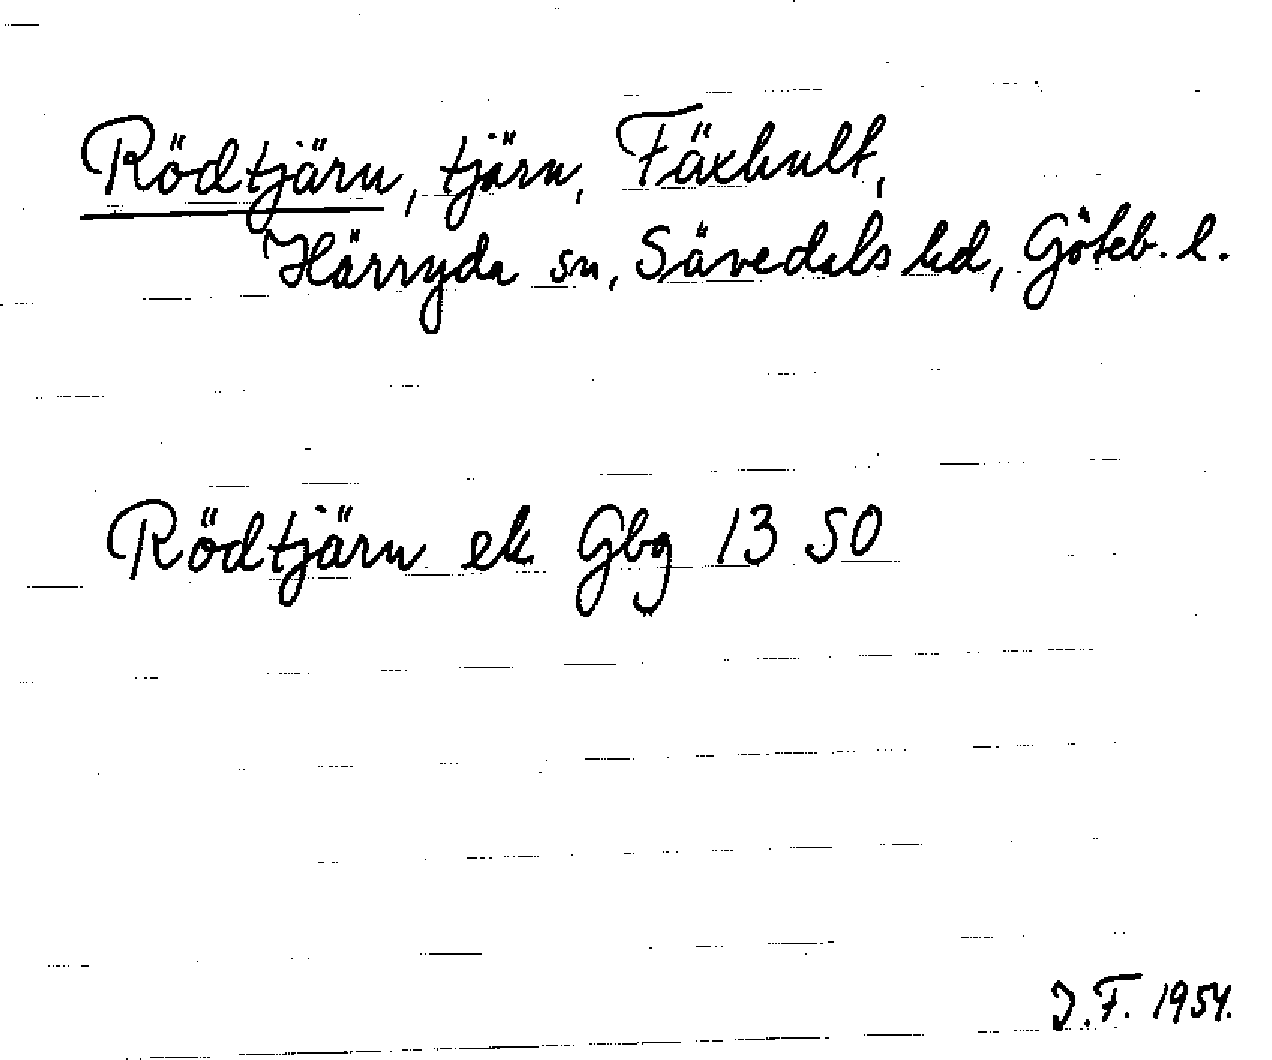 Rödtjärn, tjärn, Fäxhult,
Härryda sn, Sävedals hd, Göteb. l.
Rödtjärn ek Gbg 13 50
J.F. 1954.